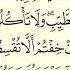 لطَّيِّبِ وَلَا تَأْكُلُ
نْ خِفْتُمْ أَلَّا تُقْسِطُ